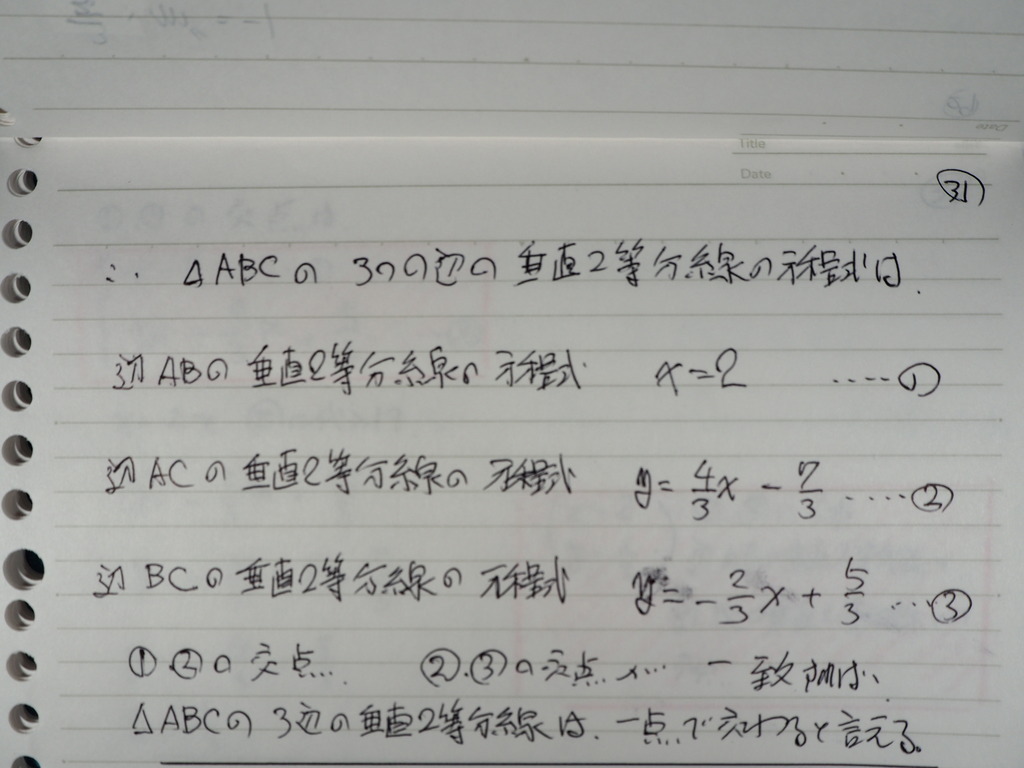 Title
Date
㉛
∴ △ABCの 3つの辺の 垂直2等分線の方程式は、
辺ABの 垂直2等分線の 方程式 x=2 ‥‥①
辺ACの垂直2等分線の 方程式 y=4/3x - 7/3 ‥‥②
辺BCの垂直2等分線の 方程式 y=-2/3x + 5/3 ‥③
①②の 交点… ②.③の交点が… 一致すれば、
△ABCの 3辺の垂直2等分線は、一点で交わると言える。